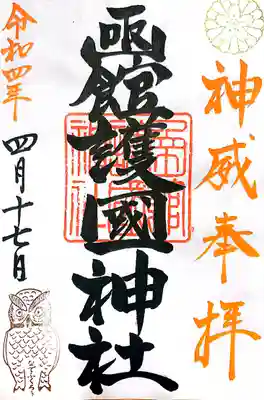 神威奉拝
函館護國神社
令和四年
四月十七日